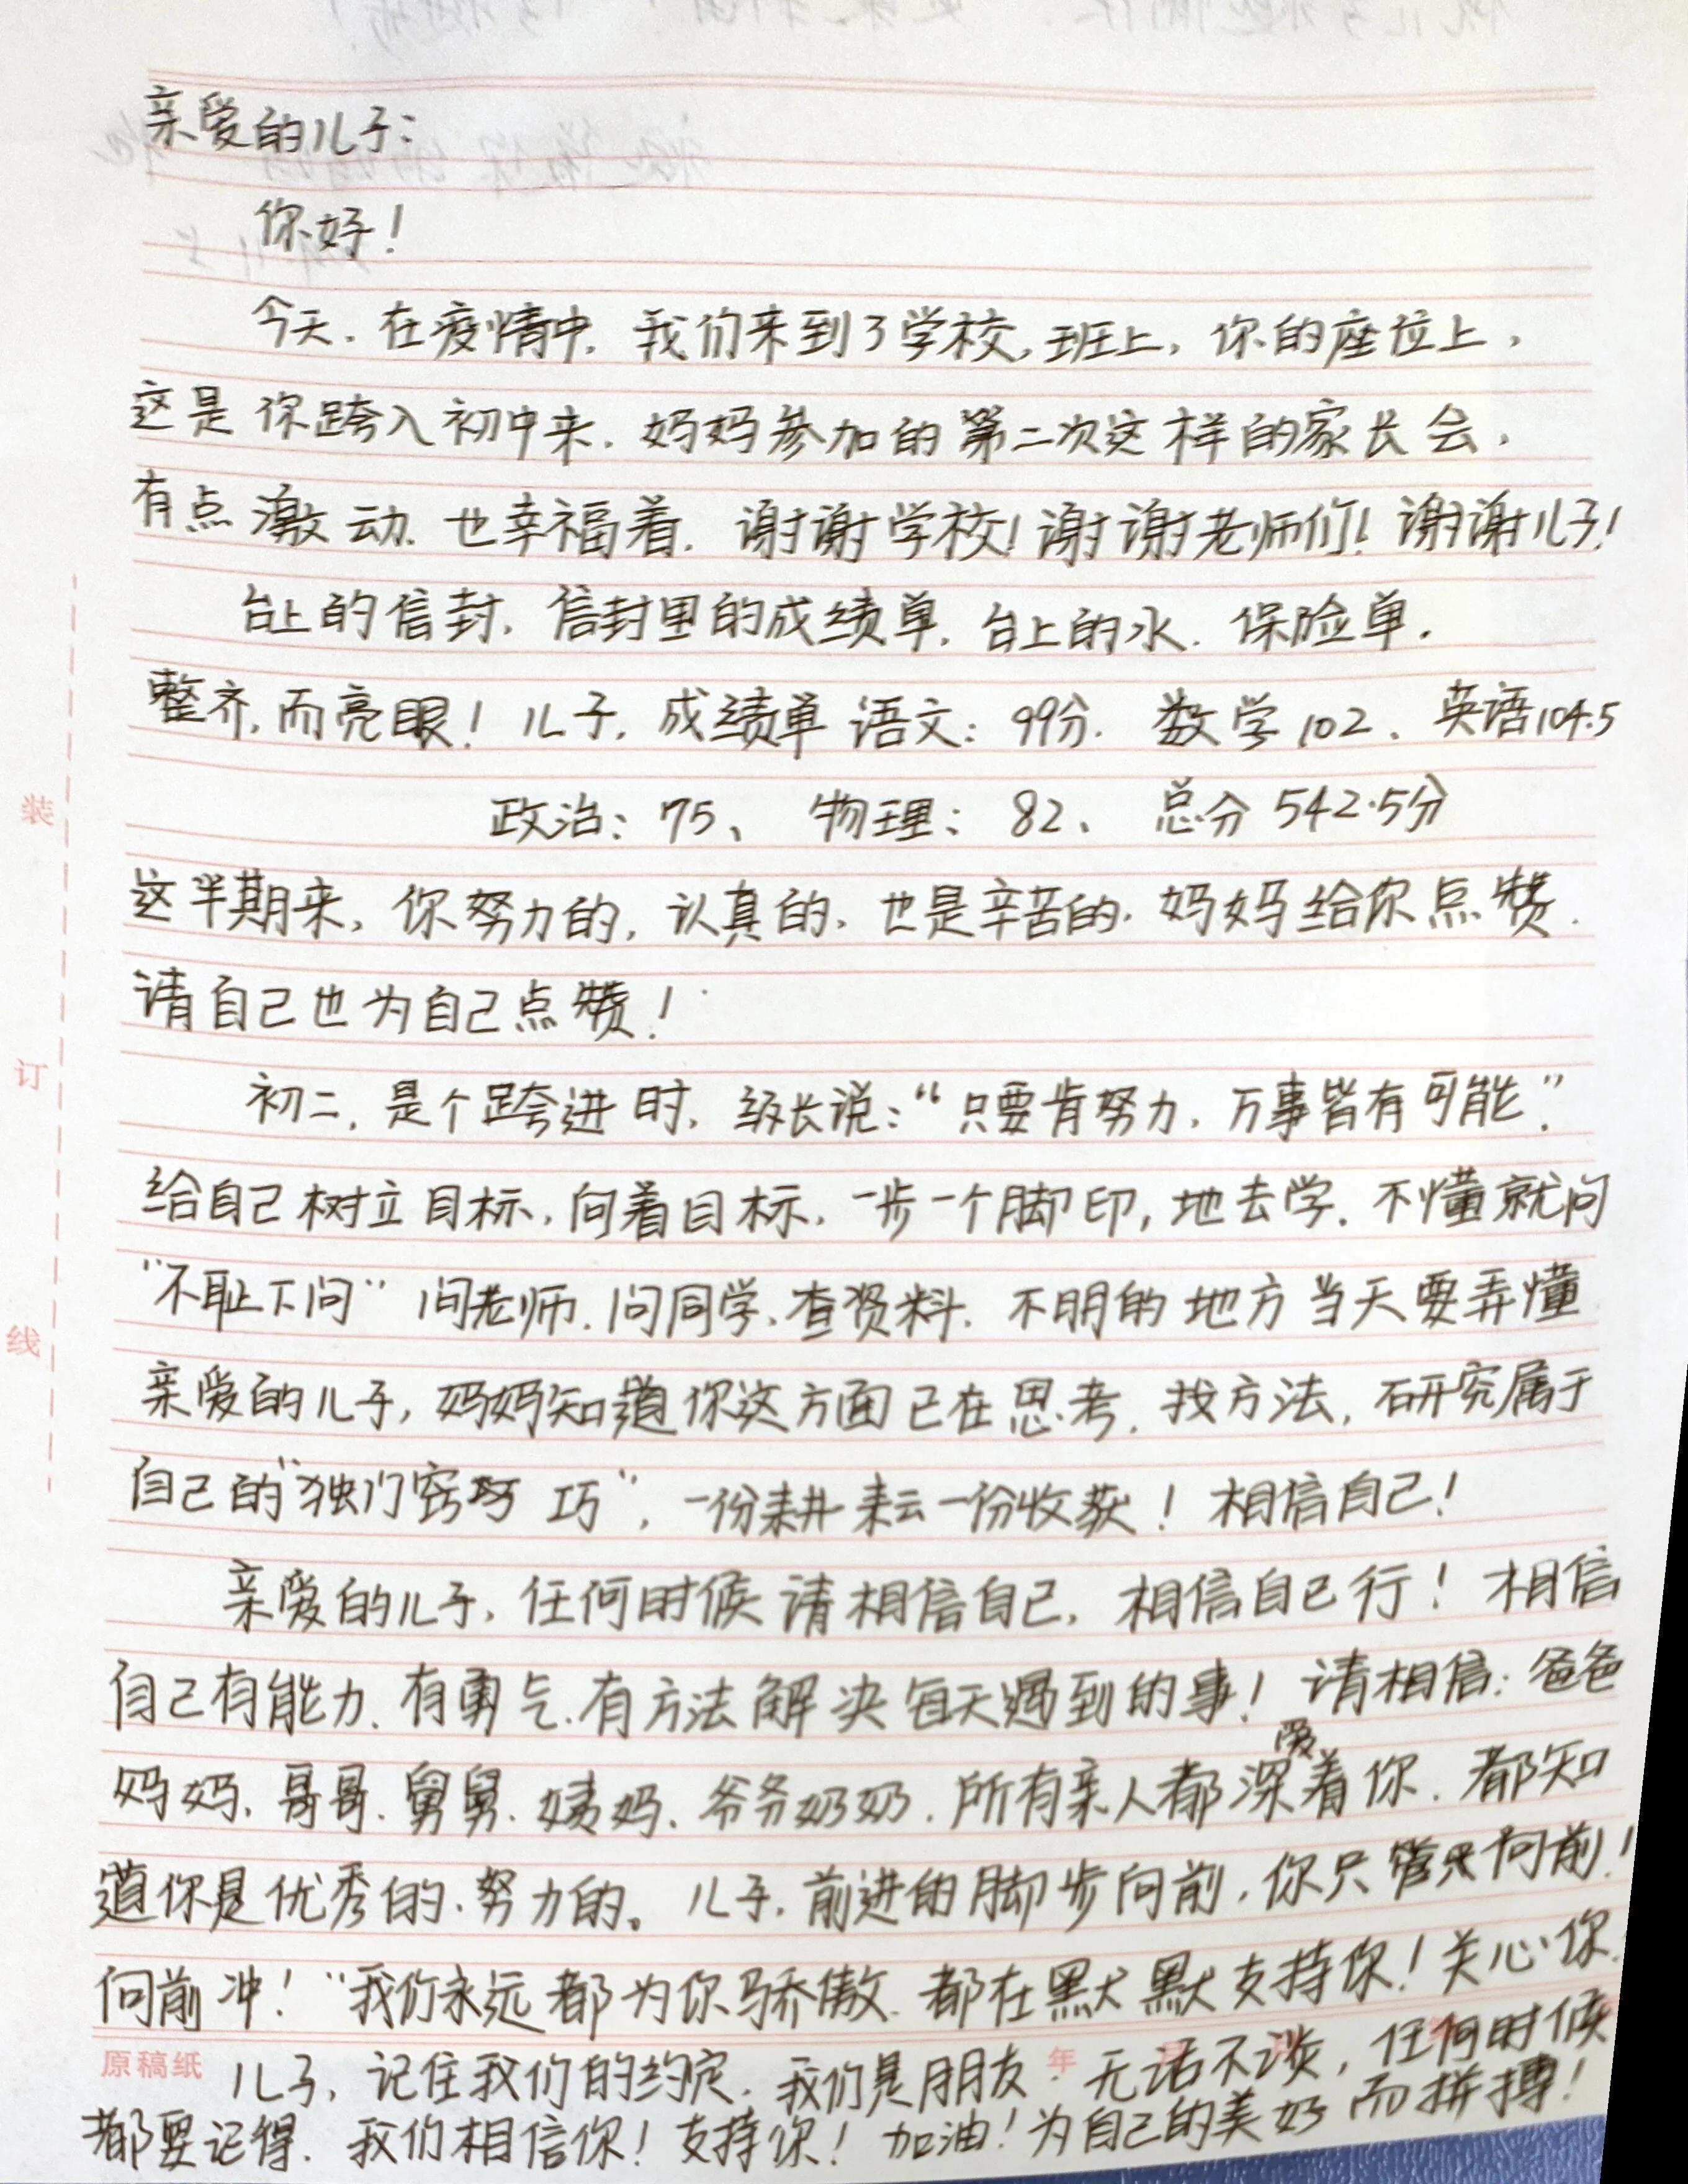 亲爱的儿子：
你好！
今天.在疫情中.我们来到了学校,班上，你的座位上，
这是你跨入初中来.妈妈参加的第二次这样的家长会，
有点激动.也幸福着.谢谢学校！谢谢老师们！谢谢儿子！
台上的信封.信封里的成绩单.台上的水.保险单.
整齐.而亮眼！儿子，成绩单语文：99分.数学102、英语104.5
政治：75、物理：82、总分542.5分
这半期来，你努力的，认真的.也是辛苦的.妈妈给你点赞.
请自己也为自己点赞！
初二，是个跨进时，级长说：“只要肯努力，万事皆有可能”.
给自己树立目标，向着目标，一步一个脚印，地去学.不懂就问
“不耻下问”问老师.问同学、查资料.不明的地方当天要弄懂
亲爱的儿子，妈妈知道你这方面已在思考.找方法，研究属于
自己的“独门窍巧”，一份耕耘一份收获！相信自己！
亲爱的儿子，任何时候请相信自己，相信自己行！相信
自己有能力.有勇气.有方法解决每天遇到的事！请相信：爸爸
妈妈、哥哥.舅舅.姨妈、爷爷奶奶.所有亲人都深爱着你.都知
道你是优秀的.努力的。儿子.前进的脚步向前，你只管向前！
向前冲！“我们永远都为你骄傲.都在默默支持你！关心你.
原稿纸 年
儿子，记住我们的约定.我们是朋友.无话不谈，任何时候
都要记得.我们相信你！支持你！加油！为自己的美好而拼搏！
装
订
线